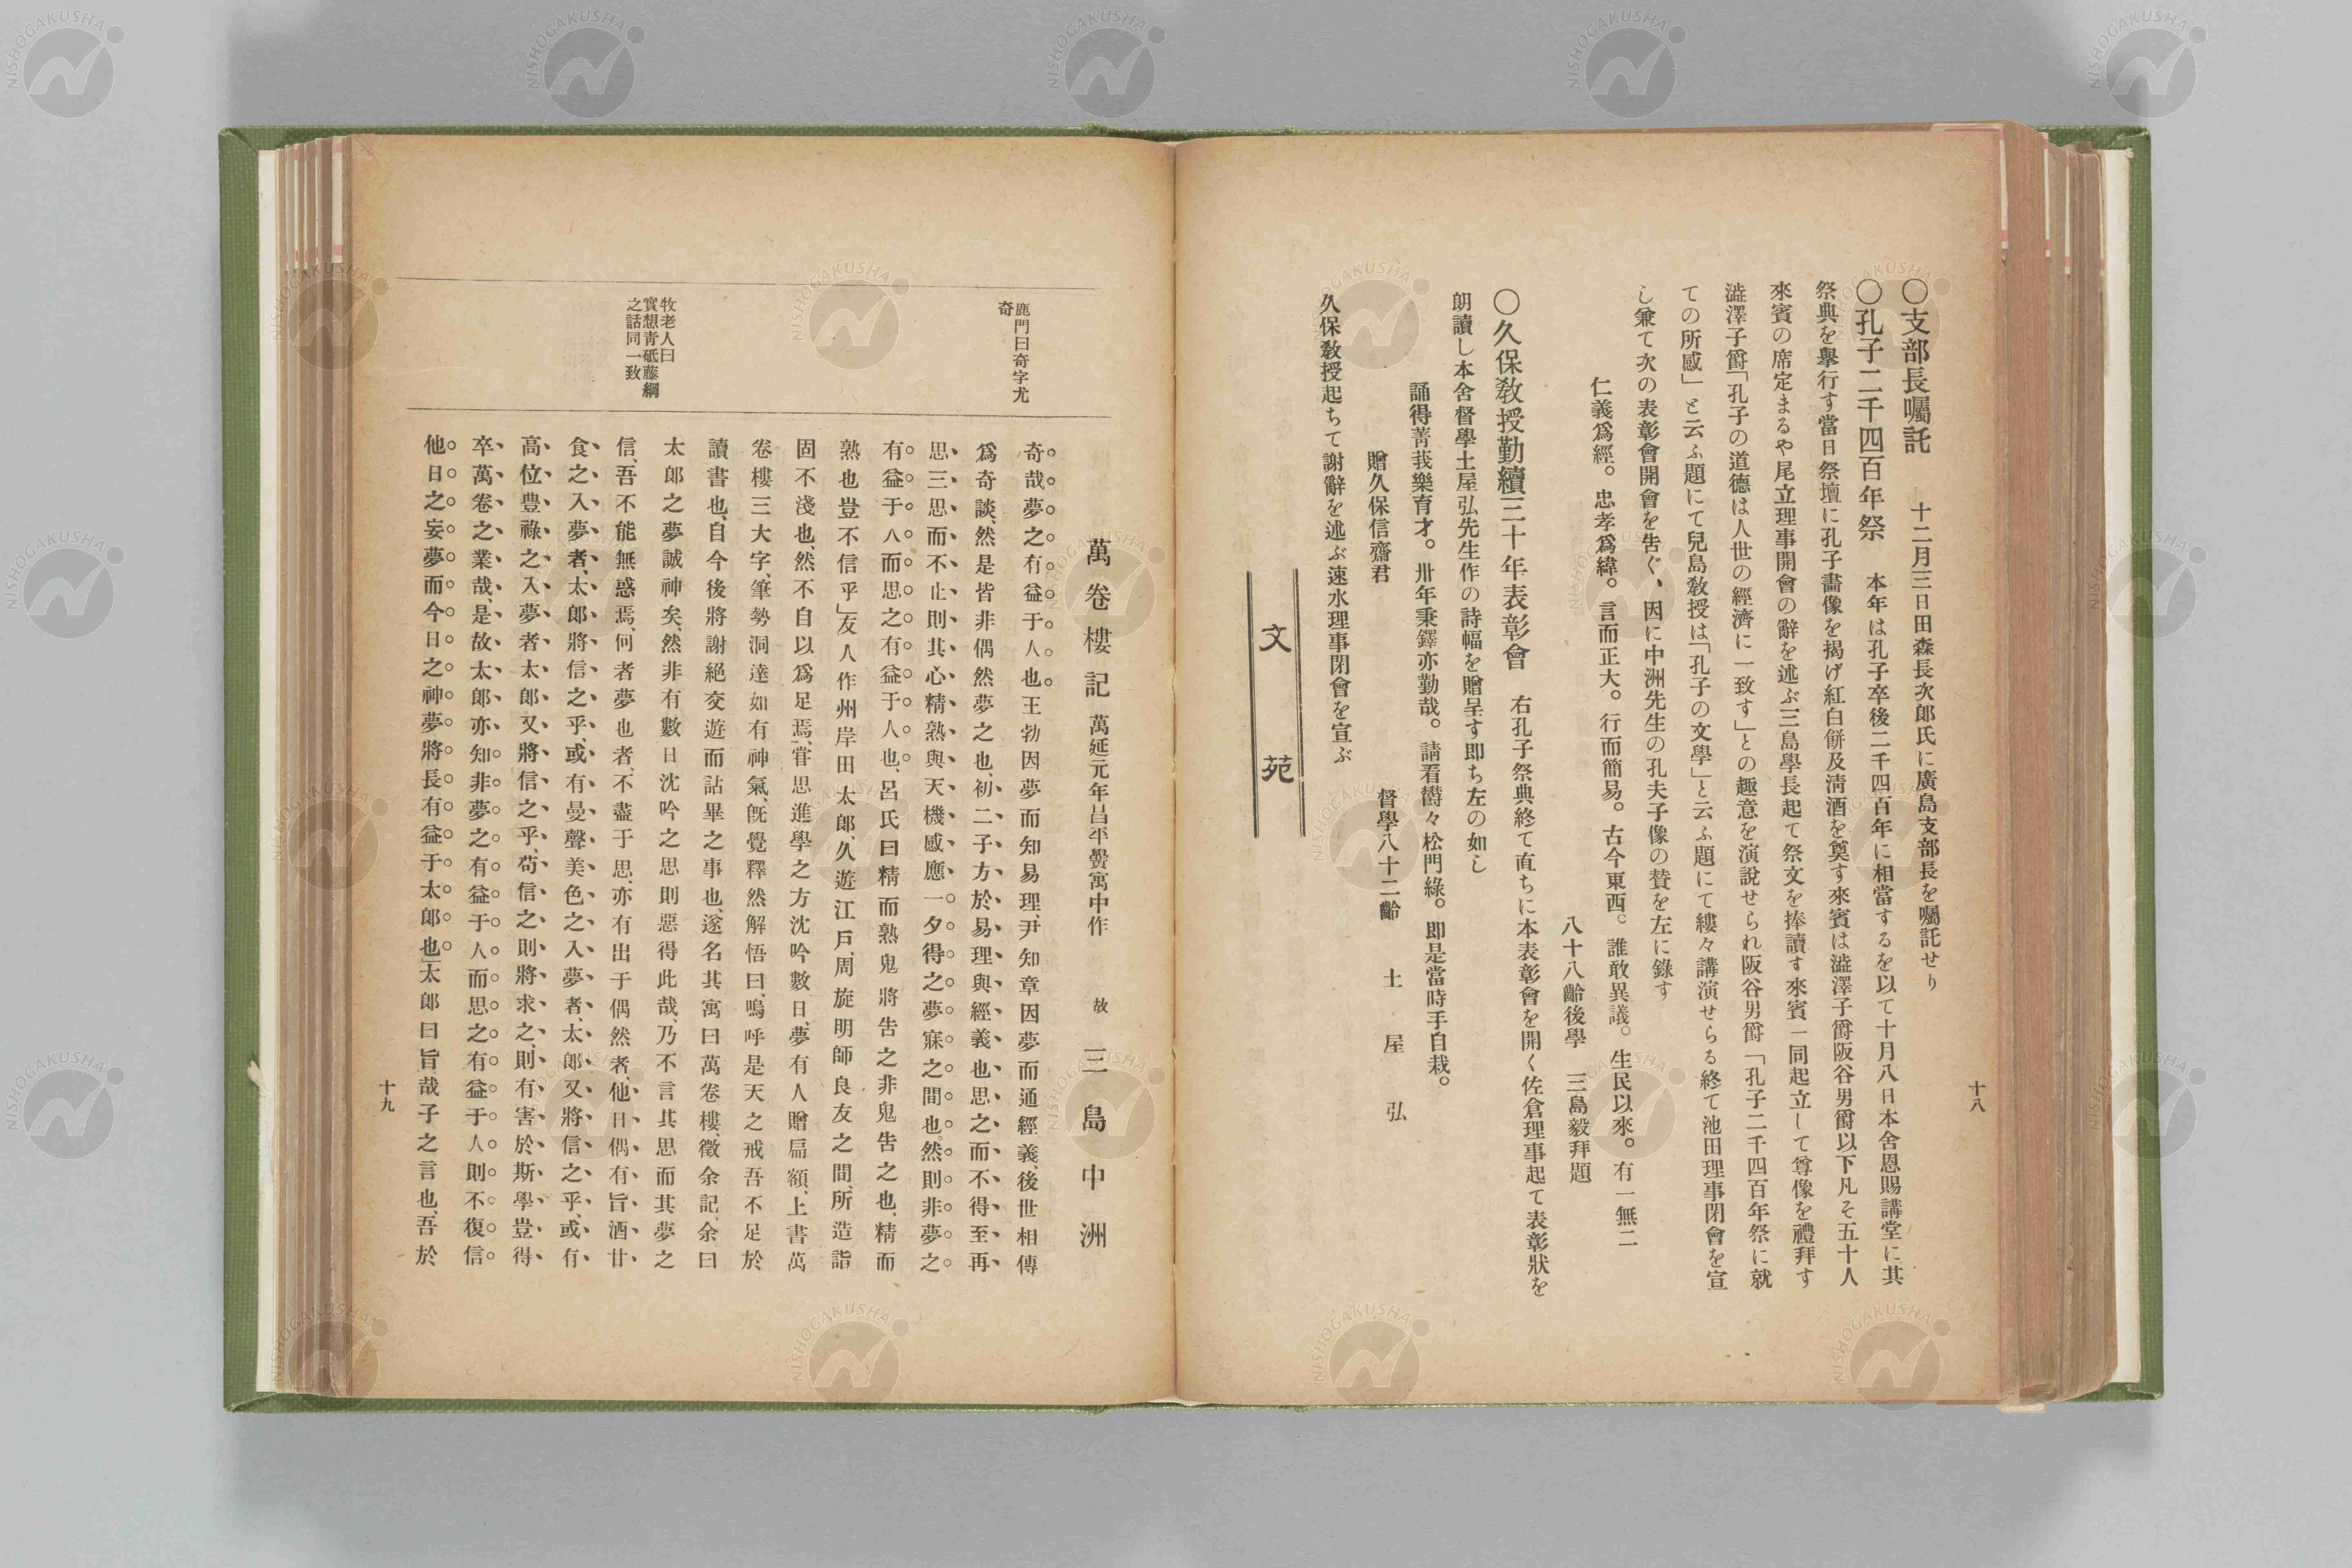 十八
〇支部長囑託　十二月三日田森長次郎氏に廣島支部長を囑託せり
〇孔子二千四百年祭　本年は孔子卒後二千四百年に相當するを以て十月八日本舍恩賜講堂に其
祭典を擧行す當日祭壇に孔子畵像を揭げ紅白餅及淸酒を奠す來賓は澁澤子爵阪谷男爵以下凡そ五十人
來賓の席定まるや尾立理事開會の辭を述ぶ三島學長起て祭文を捧讀す來賓一同起立して尊像を禮拜す
澁澤子爵「孔子の道德は人世の經濟に一致す」との趣意を演說せられ阪谷男爵「孔子二千四百年祭に就
ての所感」と云ふ題にて兒島敎授は「孔子の文學」と云ふ題にて縷々講演せらる終て池田理事閉會を宣
し兼て次の表彰會開會を告ぐ、因に中洲先生の孔夫子像の賛を左に錄す
仁義爲經。忠孝爲緯。言而正大。行而簡易。古今東西。誰敢異議。生民以來。有一無二
八十八齡後學　三島毅拜題
〇久保敎授勤續三十年表彰會　右孔子祭典終て直ちに本表彰會を開く佐倉理事起て表彰狀を
朗讀し本舍督學土屋弘先生作の詩幅を贈呈す即ち左の如し
誦得菁莪樂育才。卅年秉鐸亦勤哉。請看欝々松門綠。即是當時手自栽。
贈久保信齋君
督學八十二齡　土屋弘
久保敎授起ちて謝辭を述ぶ速水理事閉會を宣ぶ
文苑
鹿門曰奇字尤
奇
牧老人曰
實想靑砥藤綱
之話同一致
萬卷樓記　萬延元年昌平黌寓中作　故　三島中洲
奇哉夢之有益于人也王勃因夢而知易理、尹知章因夢而通經義、後世相傳
爲奇談、然是皆非偶然夢之也、初二子方於易理與經義也思之而不得至再
思三思而不止則其心精熟與天機感應一夕得之夢寐之間也、然則非夢之
有益于人而思之有益于人也、呂氏曰精而熟鬼將告之非鬼告之也、精而
熟也豈不信乎」友人作州岸田太郎、久遊江戶、周旋明師良友之間、所造詣
固不淺也、然不自以爲足焉、甞思進學之方沈吟數日、夢有人贈扁額、上書萬
卷樓三大字、筆勢洞達如有神氣、旣覺釋然解悟曰、嗚呼是天之戒吾不足於
讀書也、自今後將謝絕交遊而詁畢之事也、遂名其寓曰萬卷樓、徵余記、余曰
太郎之夢誠神矣、然非有數日沈吟之思則惡得此哉、乃不言其思而其夢之
信、吾不能無惑焉、何者夢也者、不盡于思、亦有出于偶然者、他日偶有旨酒甘
食之入夢者、太郎將信之乎、或有曼聲美色之入夢者、太郎又將信之乎、或有
高位豊祿之入夢者太郎又將信之乎、苟信之則將求之、則有害於斯學豈得
卒萬卷之業哉、是故太郎亦知非夢之有益于人而思之有益于人則不復信
他日之妄夢而今日之神夢將長有益于太郎也」太郎曰旨哉子之言也、吾於
十九